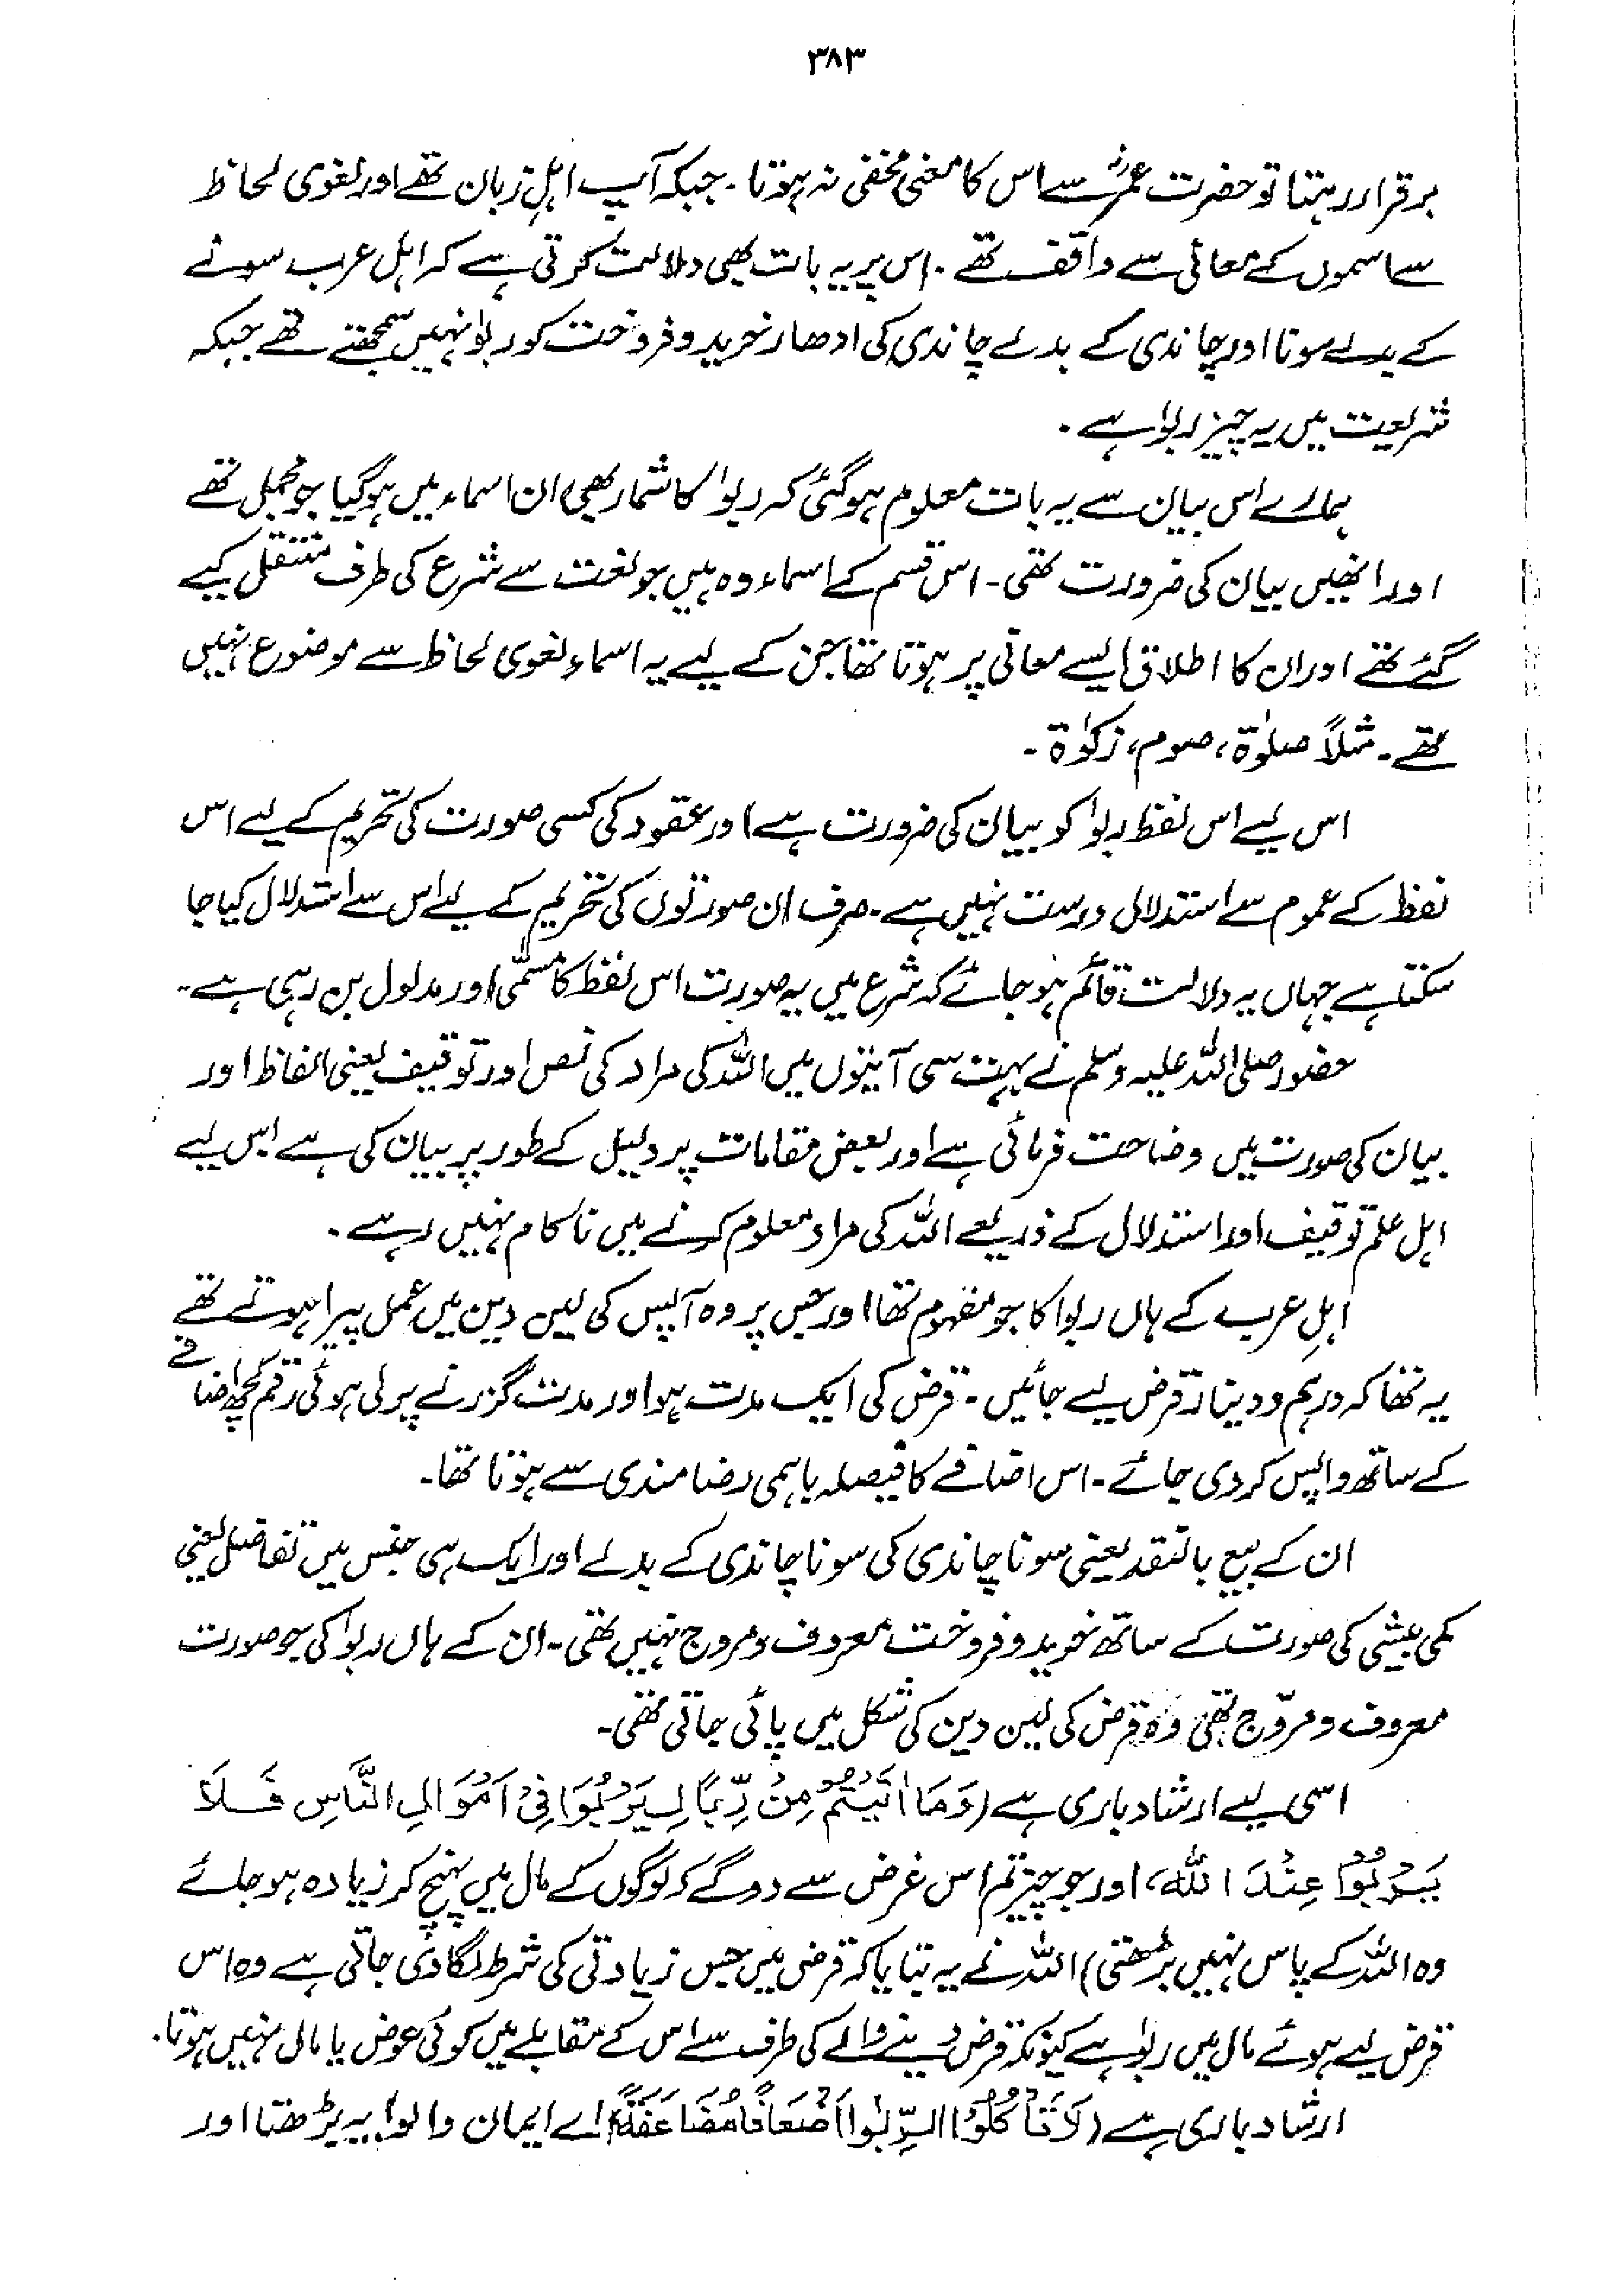 ۳۸۳
برقرار رہتا تو حضرت عمرؓ سے اس کا معنی مخفی نہ ہوتا۔ جبکہ آپ اہلِ زبان تھے اور لغوی لحاظ
سے اسموں کے معانی سے واقف تھے۔ اس پر یہ بات بھی دلالت کرتی ہے کہ اہل عرب سونے
کے بدلے سونا اور چاندی کے بدلے چاندی کی ادھار خرید و فروخت کو ربوٰا نہیں سمجھتے تھے جبکہ
شریعت میں یہ چیز ربوٰا ہے۔
ہمارے اس بیان سے یہ بات معلوم ہوگئی کہ ربوٰا کا شمار بھی ان اسماء میں ہوگیا جو مجمل تھے
اور انھیں بیان کی ضرورت تھی۔ اس قسم کے اسماء وہ ہیں جو لغت سے شرع کی طرف منتقل کیے
گئے تھے اور ان کا اطلاق ایسے معانی پر ہوتا تھا جن کے لیے یہ اسماء لغوی لحاظ سے موضوع نہیں
تھے۔ مثلاً صلوٰۃ، صوم، زکوٰۃ۔
اس لیے اس لفظ ربوٰا کو بیان کی ضرورت ہے اور عقود کی کسی صورت کی تحریم کے لیے اس
لفظ کے عموم سے استدلال درست نہیں ہے۔ صرف ان صورتوں کی تحریم کے لیے اس سے استدلال کیا جا
سکتا ہے جہاں یہ دلالت قائم ہو جائے کہ شرع میں یہ صورت اس لفظ کا مسمّٰی اور مدلول بن رہی ہے۔
حضور صلی اللہ علیہ وسلم نے بہت سی آیتوں میں اللہ کی مراد کی نص اور توقیف یعنی الفاظ اور
بیان کی صورت میں وضاحت فرمائی ہے اور بعض مقامات پر دلیل کے طور پر بیان کی ہے اس لیے
اہل علم توقیف اور استدلال کے ذریعے اللہ کی مراد معلوم کرنے میں ناکام نہیں رہے۔
اہلِ عرب کے ہاں ربوٰا کا جو مفہوم تھا اور جس پر وہ آپس کی لین دین میں عمل پیرا ہوتے تھے
یہ تھا کہ درہم و دینار قرض لیے جائیں۔ قرض کی ایک مدت ہو اور مدت گزرنے پر لی ہوئی رقم کچھ اضافے
کے ساتھ واپس کر دی جائے۔ اس اضافے کا فیصلہ باہمی رضامندی سے ہوتا تھا۔
ان کے بیع بالنقد یعنی سونا چاندی کی سونا چاندی کے بدلے اور ایک ہی جنس میں تفاضل یعنی
کمی بیشی کی صورت کے ساتھ خرید و فروخت معروف و مروج نہیں تھی۔ ان کے ہاں ربوٰا کی جو صورت
معروف و مروّج تھی وہ قرض کی لین دین کی شکل میں پائی جاتی تھی۔
اسی لیے ارشاد باری ہے (وَمَا اٰتَیْتُمْ مِنْ رِّبًا لِیَرْبُوَا فِیْ اَمْوَالِ النَّاسِ فَلَا
یَرْبُوْا عِنْدَ اللہِ، اور جو چیز تم اس غرض سے دوگے کہ لوگوں کے مال میں پہنچ کر زیادہ ہو جائے
وہ اللہ کے پاس نہیں بڑھتی) اللہ نے یہ بتایا کہ قرض میں جس زیادتی کی شرط لگا دی جاتی ہے وہ اس
قرض لیے ہوئے مال میں ربوٰا ہے کیونکہ قرض دینے والے کی طرف سے اس کے مقابلے میں کوئی عوض یا مال نہیں ہوتا۔
ارشاد باری ہے (لَا تَاْکُلُوا الرِّبٰوا اَضْعَافًا مُّضَاعَفَۃً اے ایمان والو! یہ بڑھتا اور